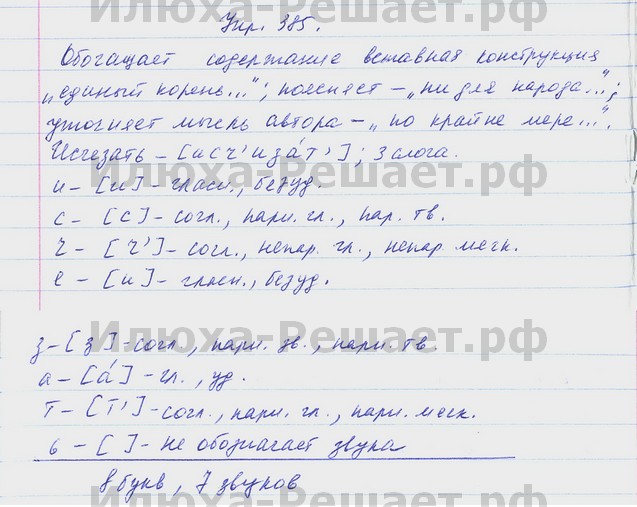 Илюха-Решает.рф
Упр. 385.
Обогащает содержание вставная конструкция
„единый корень..."; поясняет – „ни для народа...";
уточняет мысль автора – „по крайне мере...".
Исчезать – [исч'иза́т']; 3 слога.
и – [и] – гласн., безуд.
с – [с] – согл., парн. гл., пар. тв.
ч – [ч'] – согл., непар. гл., непар мягк.
е – [и] – гласн., безуд.
Илюха-Решает.рф
з – [з] – согл., парн. зв., парн. тв.
а – [а́] – гл., уд.
т – [т'] – согл., парн. гл., парн. мягк.
ь – [ ] – не обозначает звука
8 букв, 7 звуков
Илюха-Решает.рф